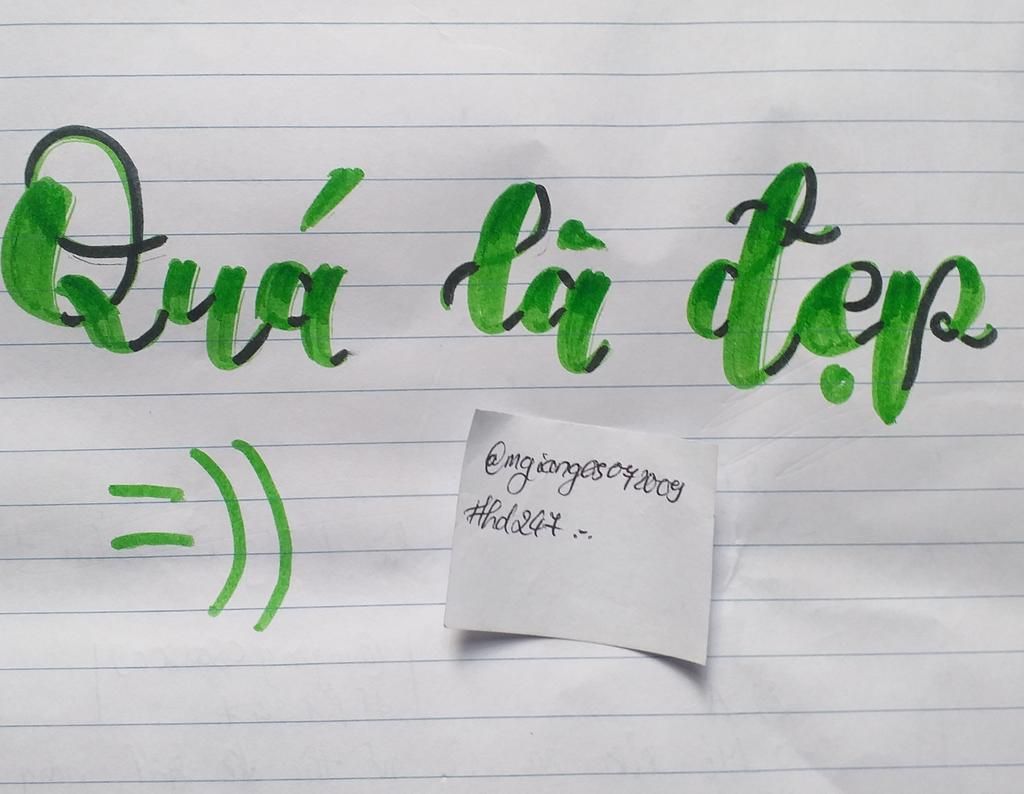 Quá là đẹp
=))
@mgianges072009
#hd247 :-